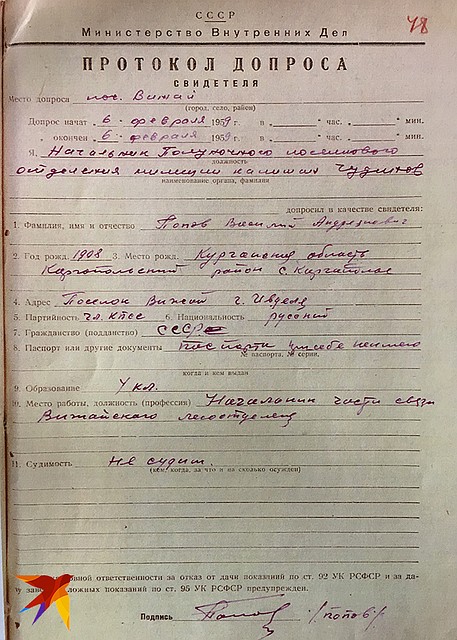 48
СССР
Министерство Внутренних Дел
ПРОТОКОЛ ДОПРОСА
СВИДЕТЕЛЯ
Место допроса пос. Вижай
(город, село, район)
Допрос начат 6 февраля 1959 г. в час. мин.
„ окончен 6 февраля 1959 г. в час. мин.
Я, Начальник Полуночного поселкового
должность
отделения милиции капитан Чудинов
наименование органа, фамилия
допросил в качестве свидетеля:
1. Фамилия, имя и отчество Попов Василий Андреевич
2. Год рожд. 1908 3. Место рожд. Курганская область
Каргопольский район с. Каргополье
4. Адрес Поселок Вижай г. Ивделя
5. Партийность чл. КПСС 6. Национальность русский
7. Гражданство (подданство) СССР
8. Паспорт или другие документы паспорта при себе не имею
№ паспорта, № серии,
когда и кем выдан
9. Образование 4 кл.
10. Место работы, должность (профессия) Начальник части связи
Вижайского лесоотделения
11. Судимость Не судим.
(кем, когда, за что и на сколько осужден)
головной ответственности за отказ от дачи показаний по ст. 92 УК РСФСР и за да-
чу заведомо ложных показаний по ст. 95 УК РСФСР предупрежден.
Подпись Попов /попов/